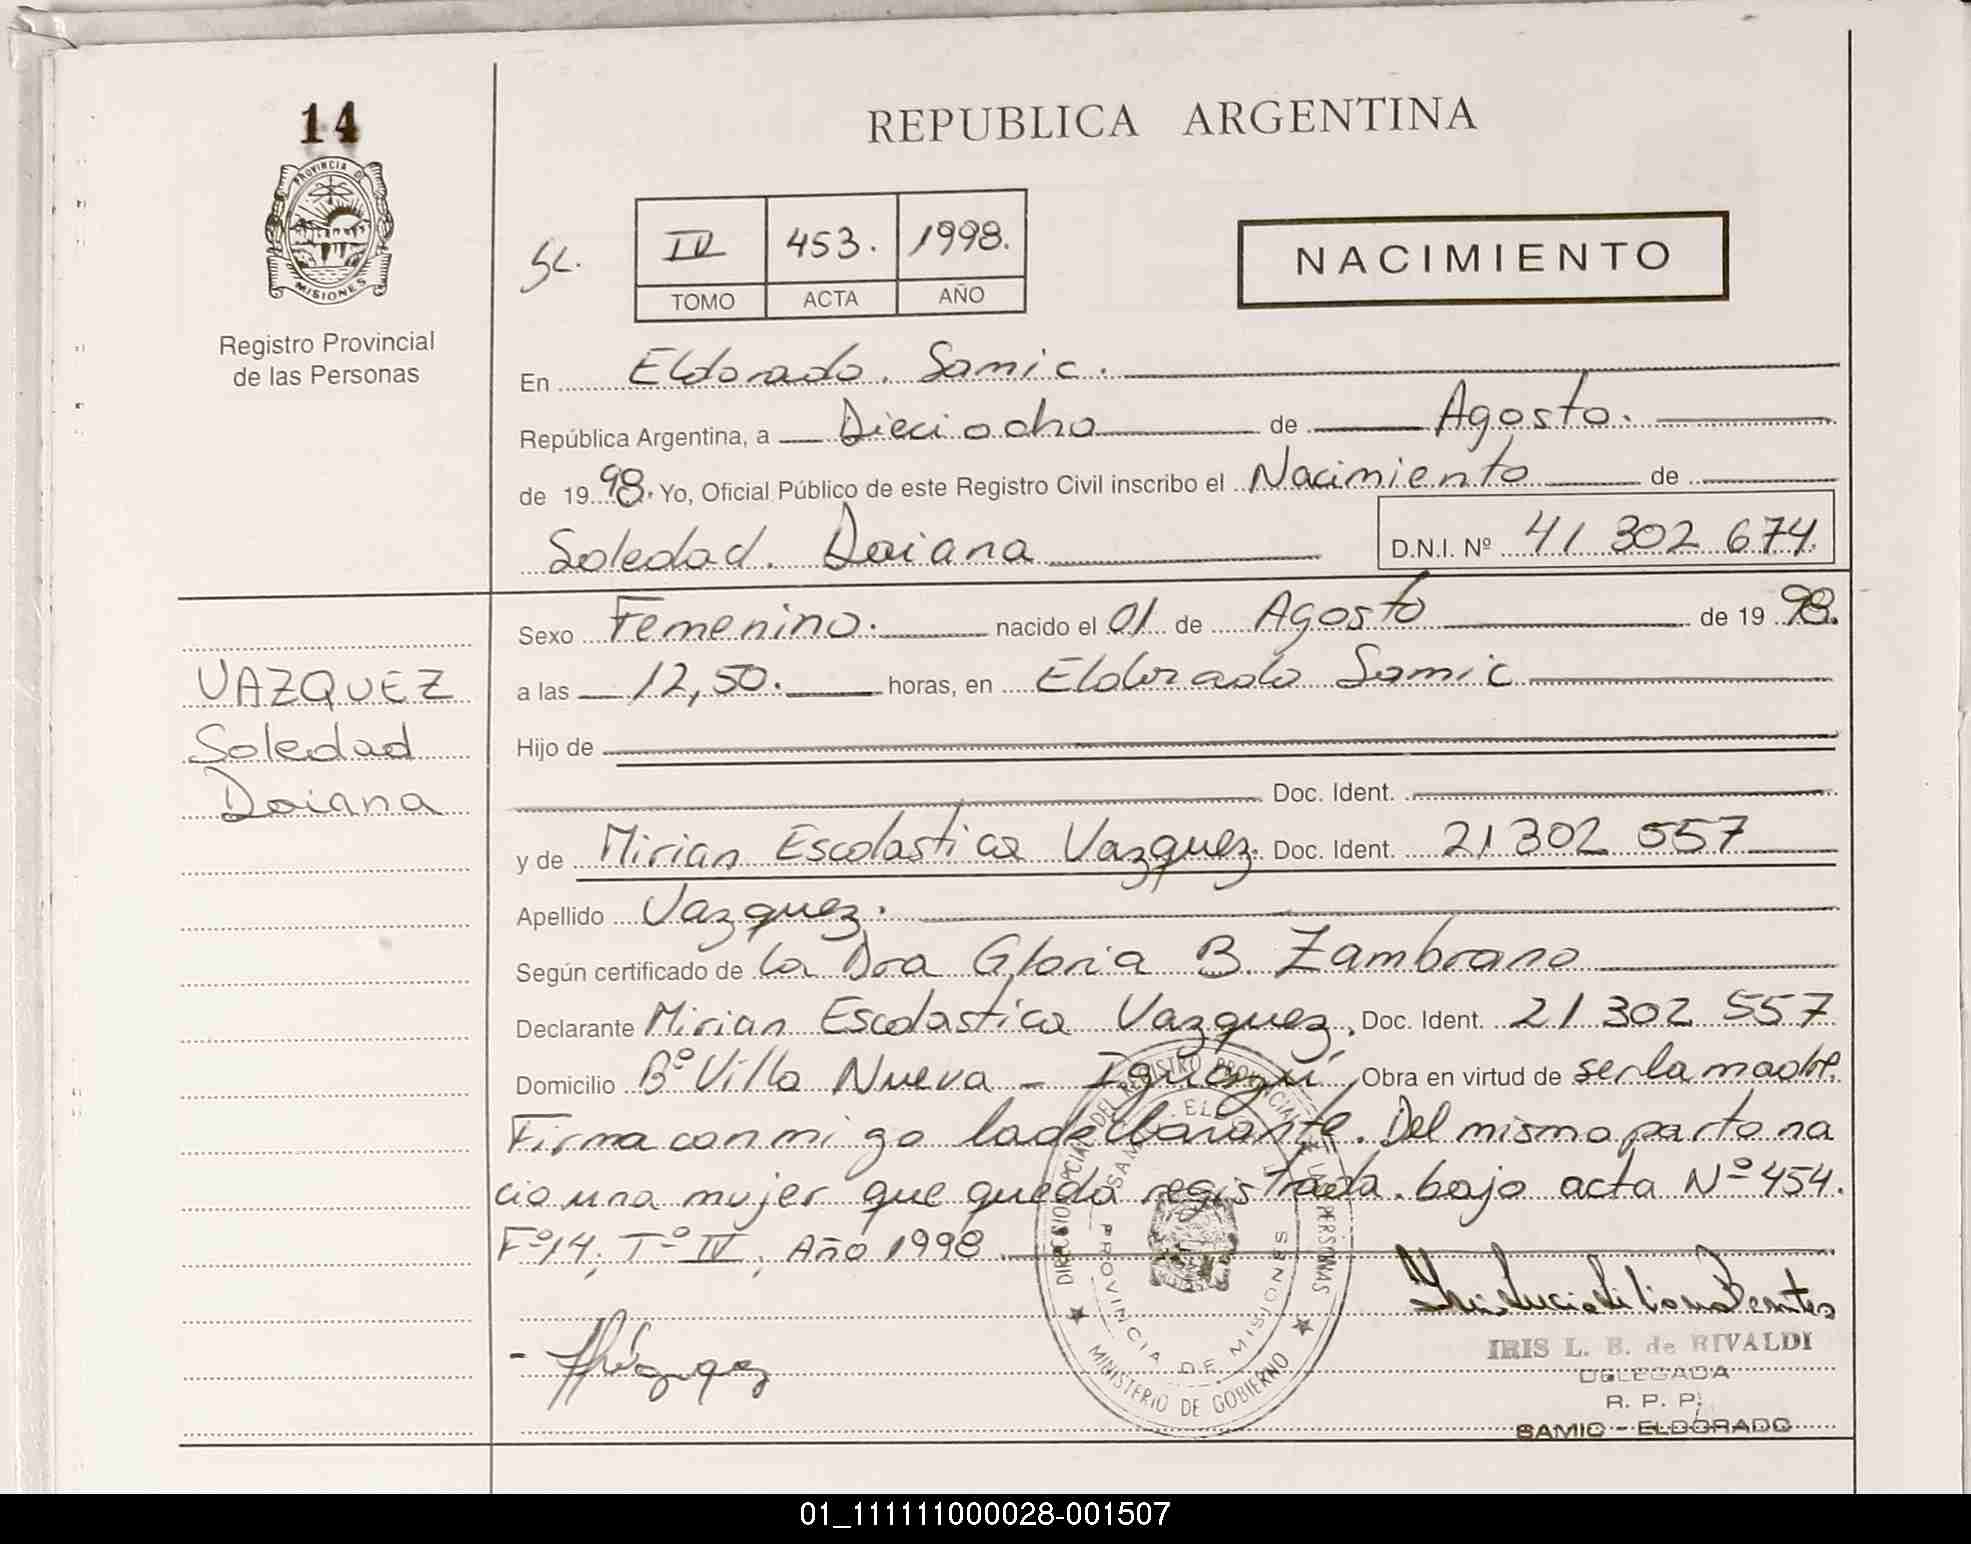 14
PROVINCIA DE
MISIONES
Registro Provincial
de las Personas
REPUBLICA ARGENTINA
SC.
IV 453. 1998.
TOMO ACTA AÑO
NACIMIENTO
En Eldorado. Samic.
República Argentina, a Dieciocho de Agosto.
de 1998. Yo, Oficial Público de este Registro Civil inscribo el Nacimiento de
Soledad. Daiana D.N.I. Nº 41 302 674.
VAZQUEZ
Soledad
Daiana
Sexo Femenino. nacido el 01 de Agosto de 1998.
a las 12,50. horas, en Eldorado Samic
Hijo de
Doc. Ident.
y de Mirian Escolastica Vazquez. Doc. Ident. 21 302 557
Apellido Vazquez.
Según certificado de la Dra Gloria B. Zambrano
Declarante Mirian Escolastica Vazquez, Doc. Ident. 21 302 557
Domicilio Bº Villa Nueva - Iguazú, Obra en virtud de ser la madre.
Firma conmigo la declarante. Del mismo parto na
cio una mujer que queda registrada. bajo acta Nº 454.
Fº14, Tº IV, Año 1998
DIRECCION PCIAL. DEL REGISTRO PROVINCIAL DE LAS PERSONAS
PROVINCIA DE MISIONES
MINISTERIO DE GOBIERNO
IRIS L. B. de RIVALDI
DELEGADA
R. P. P.
SAMIC - ELDORADO
01_111111000028-001507